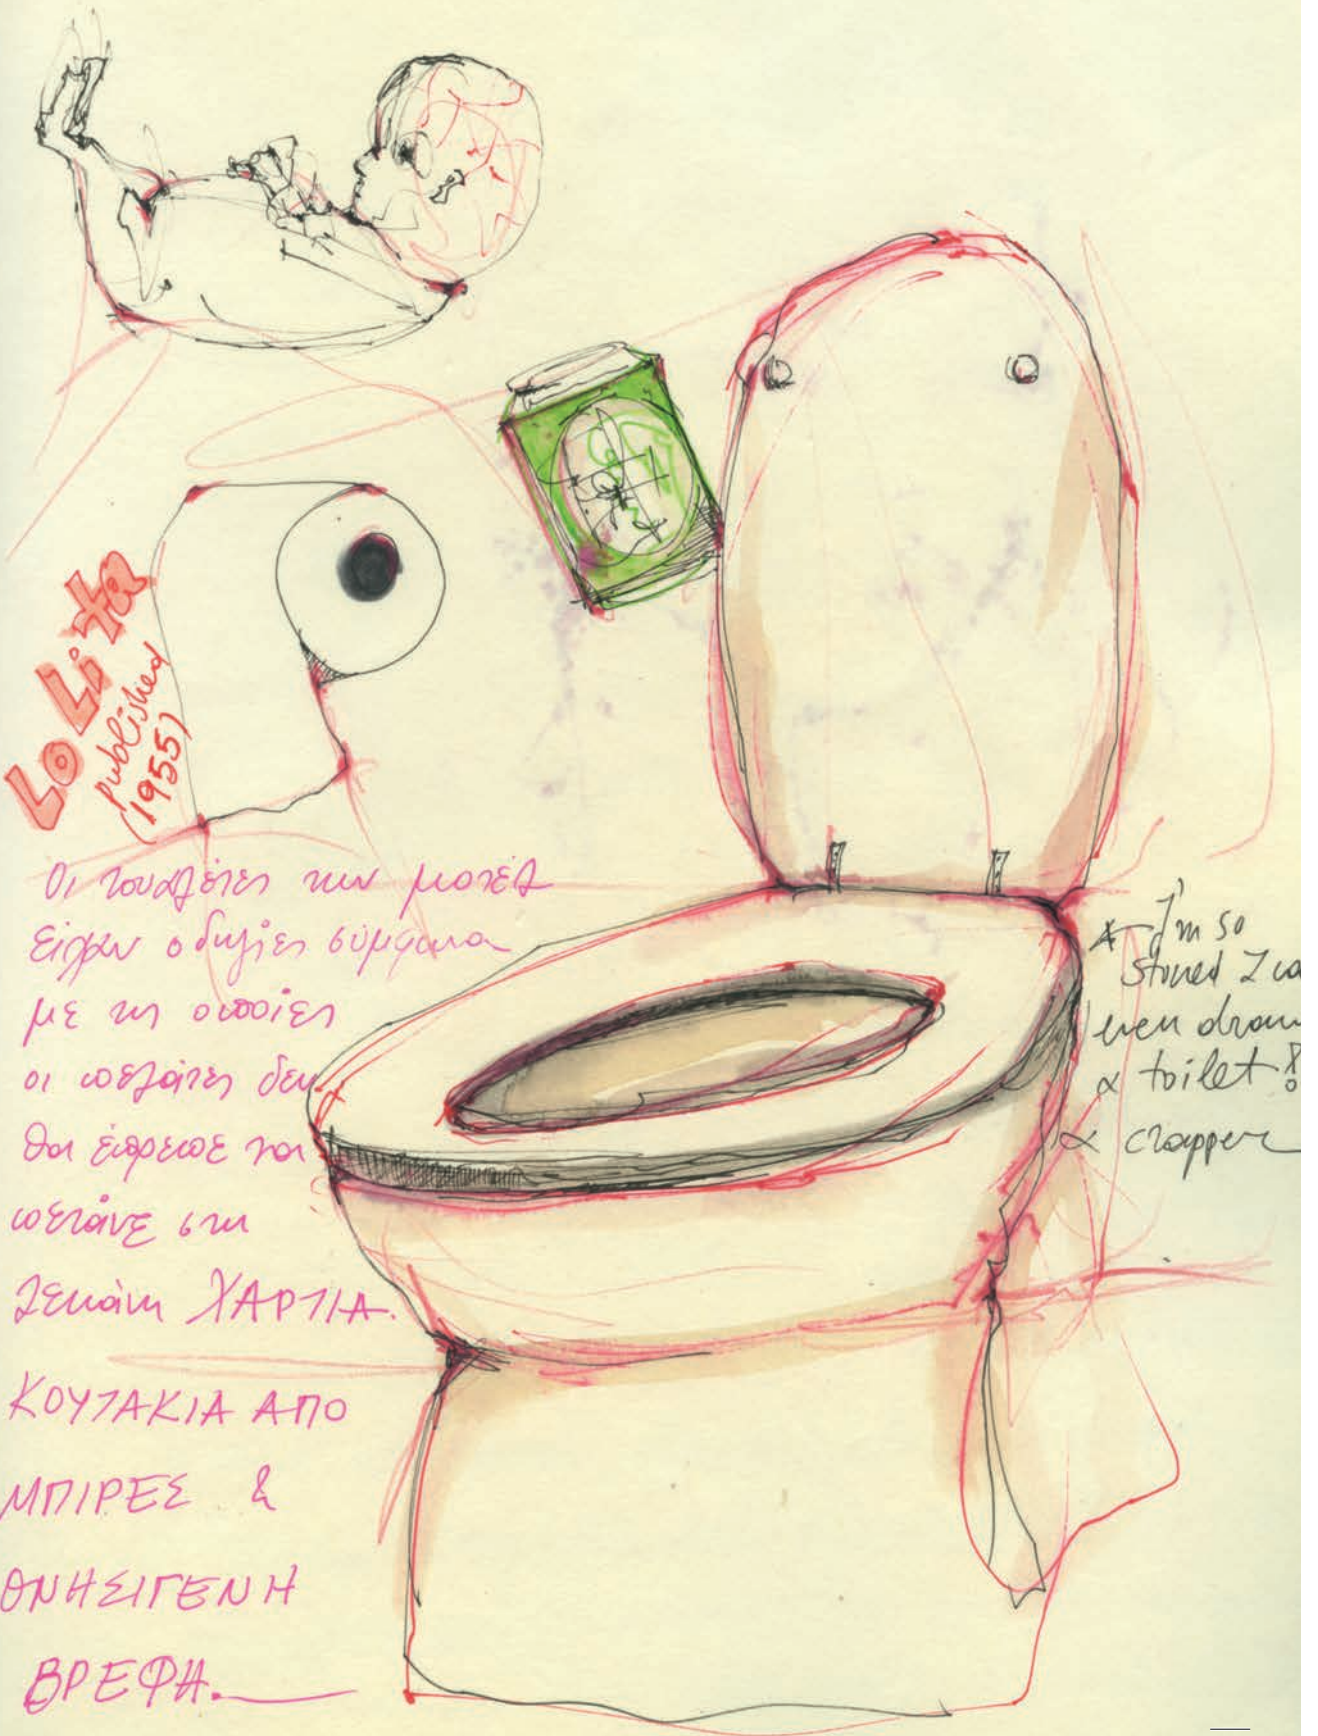 LoLita
published
(1955)
Οι τουαλέτες των μοτέλ
είχαν οδηγίες σύμφωνα
με τις οποίες
οι πελάτες δεν
θα έπρεπε να
πετάνε στη
λεκάνη ΧΑΡΤΙΑ.
ΚΟΥΤΑΚΙΑ ΑΠΟ
ΜΠΙΡΕΣ &
ΘΝΗΣΙΓΕΝΗ
ΒΡΕΦΗ.
I'm so
stoned I
even draw
α toilet!
α crapper